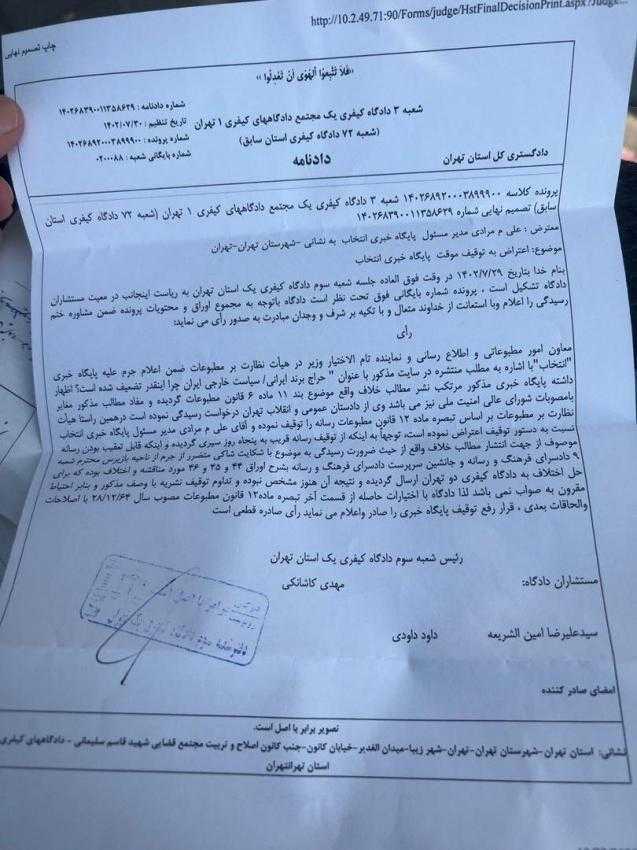 http://10.2.49.71:90/Forms/judge/HstFinalDecisionPrint.aspx?Judge...
چاپ تصمیم نهایی
«فَلَا تَتَّبِعُوا الْهَوَىٰ أَنْ تَعْدِلُوا»
شماره دادنامه : ۱۴۰۲۶۸۳۹۰۰۱۱۳۵۸۶۲۹
تاریخ تنظیم : ۱۴۰۲/۰۷/۳۰
شماره پرونده : ۱۴۰۲۶۸۹۲۰۰۰۳۸۹۹۹۰۰
شماره بایگانی شعبه : ۰۲۰۰۰۸۸
شعبه ۳ دادگاه کیفری یک مجتمع دادگاههای کیفری ۱ تهران
(شعبه ۷۲ دادگاه کیفری استان سابق)
دادنامه
دادگستری کل استان تهران
پرونده کلاسه ۱۴۰۲۶۸۹۲۰۰۰۳۸۹۹۹۰۰ شعبه ۳ دادگاه کیفری یک مجتمع دادگاههای کیفری ۱ تهران (شعبه ۷۲ دادگاه کیفری استان
سابق) تصمیم نهایی شماره ۱۴۰۲۶۸۳۹۰۰۱۱۳۵۸۶۲۹
معترض : علی م مرادی مدیر مسئول پایگاه خبری انتخاب به نشانی -شهرستان تهران-تهران
موضوع: اعتراض به توقیف موقت پایگاه خبری انتخاب
بنام خدا بتاریخ ۱۴۰۲/۷/۲۹ در وقت فوق العاده جلسه شعبه سوم دادگاه کیفری یک استان تهران به ریاست اینجانب در معیت مستشاران
دادگاه تشکیل است ، پرونده شماره بایگانی فوق تحت نظر است دادگاه باتوجه به مجموع اوراق و محتویات پرونده ضمن مشاوره ختم
رسیدگی را اعلام وبا استعانت از خداوند متعال و با تکیه بر شرف و وجدان مبادرت به صدور رأی می نماید:
رأی
معاون امور مطبوعاتی و اطلاع رسانی و نماینده تام الاختیار وزیر در هیأت نظارت بر مطبوعات ضمن اعلام جرم علیه پایگاه خبری
"انتخاب"با اشاره به مطلب منتشره در سایت مذکور با عنوان " حراج برند ایرانی/ سیاست خارجی ایران چرا اینقدر تضعیف شده است؟ اظهار
داشته پایگاه خبری مذکور مرتکب نشر مطالب خلاف واقع موضوع بند ۱۱ ماده ۶ قانون مطبوعات گردیده و مفاد مطالب مذکور مغایر
بامصوبات شورای عالی امنیت ملی نیز می باشد وی از دادستان عمومی و انقلاب تهران درخواست رسیدگی نموده است درهمین راستا هیأت
نظارت بر مطبوعات بر اساس تبصره ماده ۱۲ قانون مطبوعات رسانه را توقیف نموده و آقای علی م مرادی مدیر مسئول پایگاه خبری انتخاب
نسبت به دستور توقیف اعتراض نموده است، توجهاً به اینکه از توقیف رسانه قریب به پنجاه روز سپری گردیده و اینکه قابل تعقیب بودن رسانه
موصوف از جهت انتشار مطالب خلاف واقع از حیث ضرورت رسیدگی به موضوع با شکایت شاکی متضرر از جرم از ناحیه بازپرس محترم شعبه
۹ دادسرای فرهنگ و رسانه و جانشین سرپرست دادسرای فرهنگ و رسانه بشرح اوراق ۳۴ و ۳۵ و ۳۶ مورد مناقشه و اختلاف بوده که برای
حل اختلاف به دادگاه کیفری دو تهران ارسال گردیده و نتیجه آن هنوز مشخص نبوده و تداوم توقیف نشریه با وصف مذکور و بنابر احتیاط
مقرون به صواب نمی باشد لذا دادگاه با اختیارات حاصله از قسمت آخر تبصره ماده۱۲ قانون مطبوعات مصوب سال ۲۸/۱۲/۶۴ با اصلاحات
والحاقات بعدی ، قرار رفع توقیف پایگاه خبری را صادر واعلام می نماید رأی صادره قطعی است
رئیس شعبه سوم دادگاه کیفری یک استان تهران
مهدی کاشانکی
مستشاران دادگاه:
سیدعلیرضا امین الشریعه داود داودی
امضای صادر کننده
تصویر برابر با اصل است.
نشانی: استان تهران-شهرستان تهران-تهران-شهر زیبا-میدان الغدیر-خیابان کانون-جنب کانون اصلاح و تربیت مجتمع قضایی شهید قاسم سلیمانی - دادگاههای کیفری
استان تهرانتهران